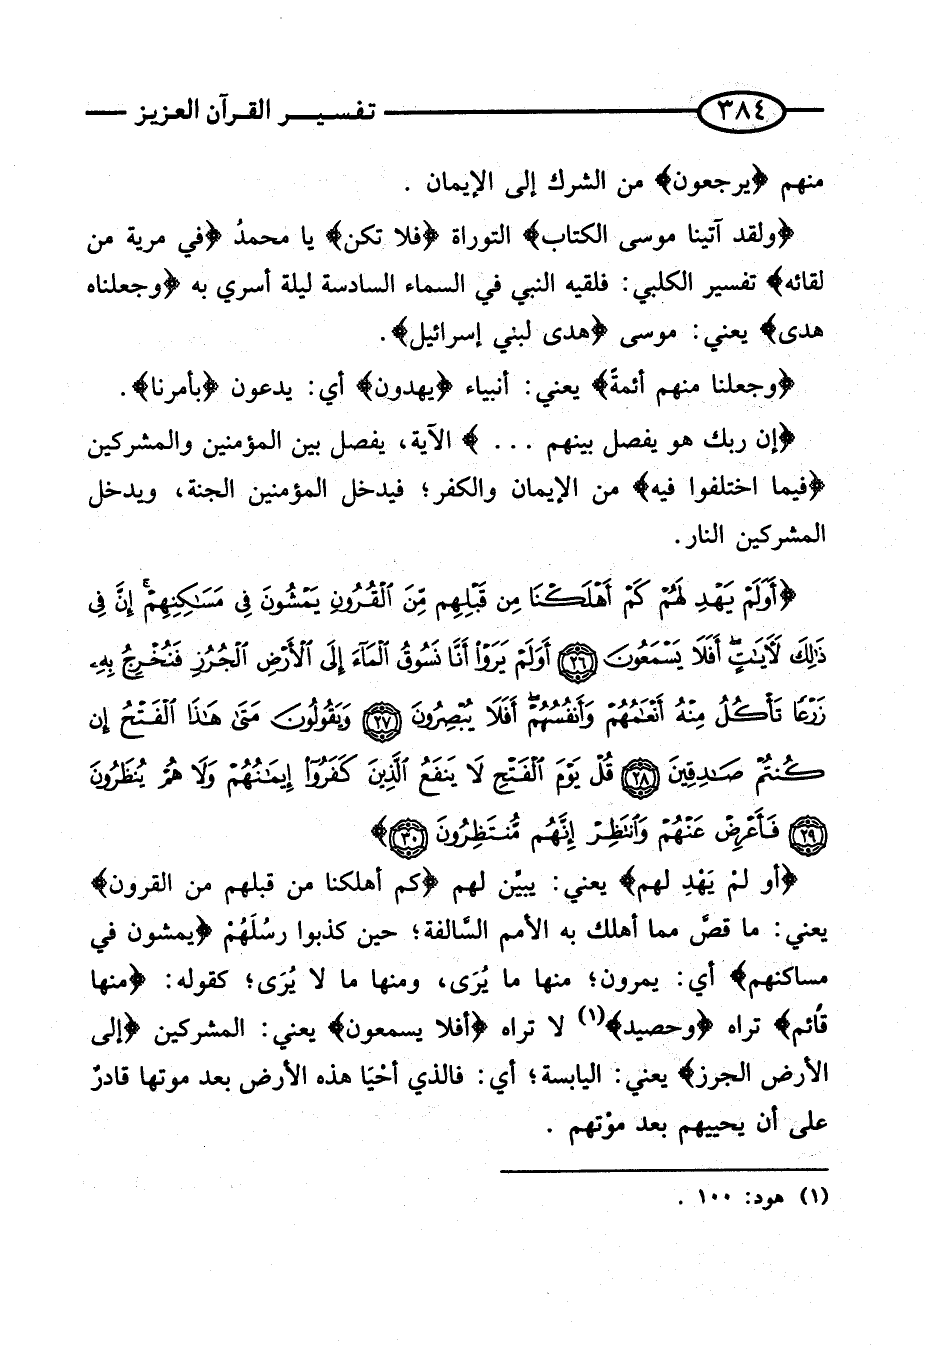 ٣٨٤ تفسير القرآن العزيز
منهم ﴿يرجعون﴾ من الشرك إلى الإيمان .
﴿ولقد آتينا موسى الكتاب﴾ التوراة ﴿فلا تكن﴾ يا محمدُ ﴿في مرية من
لقائه﴾ تفسير الكلبي: فلقيه النبي في السماء السادسة ليلة أسري به ﴿وجعلناه
هدى﴾ يعني: موسى ﴿هدى لبني إسرائيل﴾.
﴿وجعلنا منهم أئمةً﴾ يعني: أنبياء ﴿يهدون﴾ أي: يدعون ﴿بأمرنا﴾.
﴿إن ربك هو يفصل بينهم ... ﴾ الآية، يفصل بين المؤمنين والمشركين
﴿فيما اختلفوا فيه﴾ من الإيمان والكفر؛ فيدخل المؤمنين الجنة، ويدخل
المشركين النار.
﴿أَوَلَمْ يَهْدِ لَهُمْ كَمْ أَهْلَكْنَا مِن قَبْلِهِم مِّنَ ٱلْقُرُونِ يَمْشُونَ فِى مَسَٰكِنِهِمْ ۚ إِنَّ فِى
ذَٰلِكَ لَءَايَٰتٍ ۖ أَفَلَا يَسْمَعُونَ ٢٦ أَوَلَمْ يَرَوْا۟ أَنَّا نَسُوقُ ٱلْمَآءَ إِلَى ٱلْأَرْضِ ٱلْجُرُزِ فَنُخْرِجُ بِهِۦ
زَرْعًا تَأْكُلُ مِنْهُ أَنْعَٰمُهُمْ وَأَنفُسُهُمْ ۖ أَفَلَا يُبْصِرُونَ ٢٧ وَيَقُولُونَ مَتَىٰ هَٰذَا ٱلْفَتْحُ إِن
كُنتُمْ صَٰدِقِينَ ٢٨ قُلْ يَوْمَ ٱلْفَتْحِ لَا يَنفَعُ ٱلَّذِينَ كَفَرُوٓا۟ إِيمَٰنُهُمْ وَلَا هُمْ يُنظَرُونَ
٢٩ فَأَعْرِضْ عَنْهُمْ وَٱنتَظِرْ إِنَّهُم مُّنتَظِرُونَ ٣٠﴾
﴿أو لمْ يَهْدِ لهم﴾ يعني: يبيِّن لهم ﴿كم أهلكنا من قبلهم من القرون﴾
يعني: ما قصَّ مما أهلك به الأمم السَّالفة؛ حين كذبوا رسُلَهُمْ ﴿يمشون في
مساكنهم﴾ أي: يمرون؛ منها ما يُرَى، ومنها ما لا يُرَى؛ كقوله: ﴿منها
قائم﴾ تراه ﴿وحصيد﴾(١) لا تراه ﴿أفلا يسمعون﴾ يعني: المشركين ﴿إلى
الأرض الجرز﴾ يعني: اليابسة؛ أي: فالذي أحْيَا هذه الأرض بعد موتها قادرٌ
على أن يحييهم بعد موْتهم .
(١) هود: ١٠٠ .